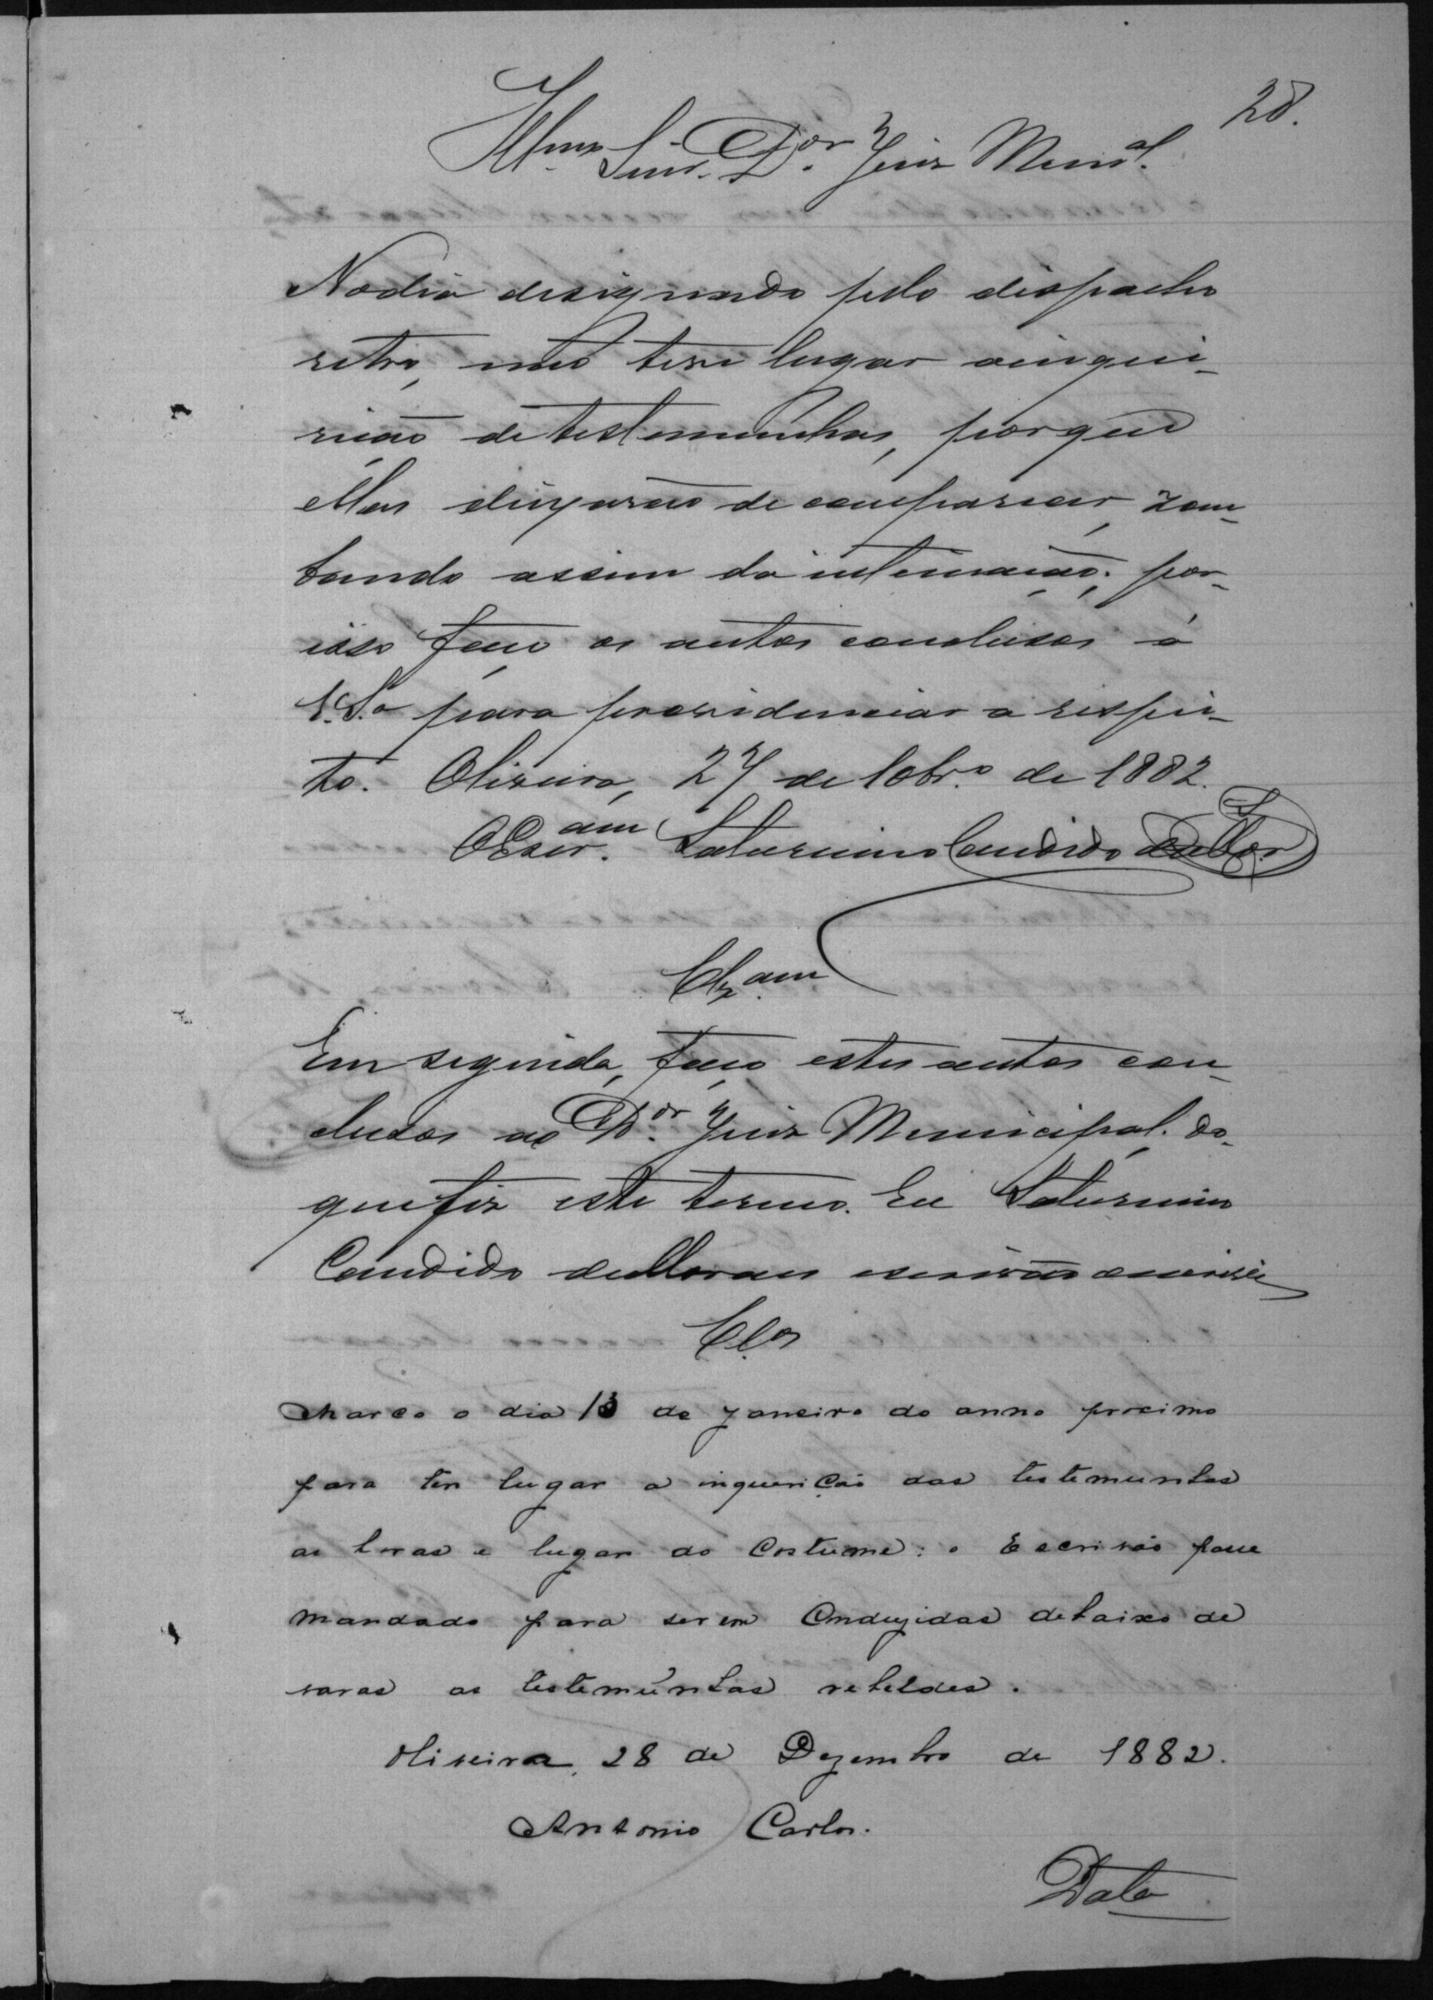 28.
Illmo. Snr. Dor. Juiz Munal.
No dia designado pelo despacho
retro, não teve lugar a inqui-
rição de testemunhas, porque
ellas deixarão de comparecer, zom-
bando assim da intimação; por-
isso faço os autos conclusos á
V.Sa. para providenciar a respei-
to. Oliveira, 27 de 10bro. de 1882.
O Escram. Saturnino Candido de Mor.
Clzam
Em seguida, faço estes autos con-
clusos ao Dor. Juiz Municipal. Do-
que fiz este termo. Eu Saturnino
Candido de Moraes escrivão escrevi
Clos
Marco o dia 13 de Janeiro do anno procimo
para ter lugar a inquerição das testemunhas
as horas e lugar do Costume: o Escrivão passe
mandado para serem Condusidas debaixo de
varas as testemunhas rebeldes.
Oliveira, 28 de Dezembro de 1882.
Antonio Carlos.
Data